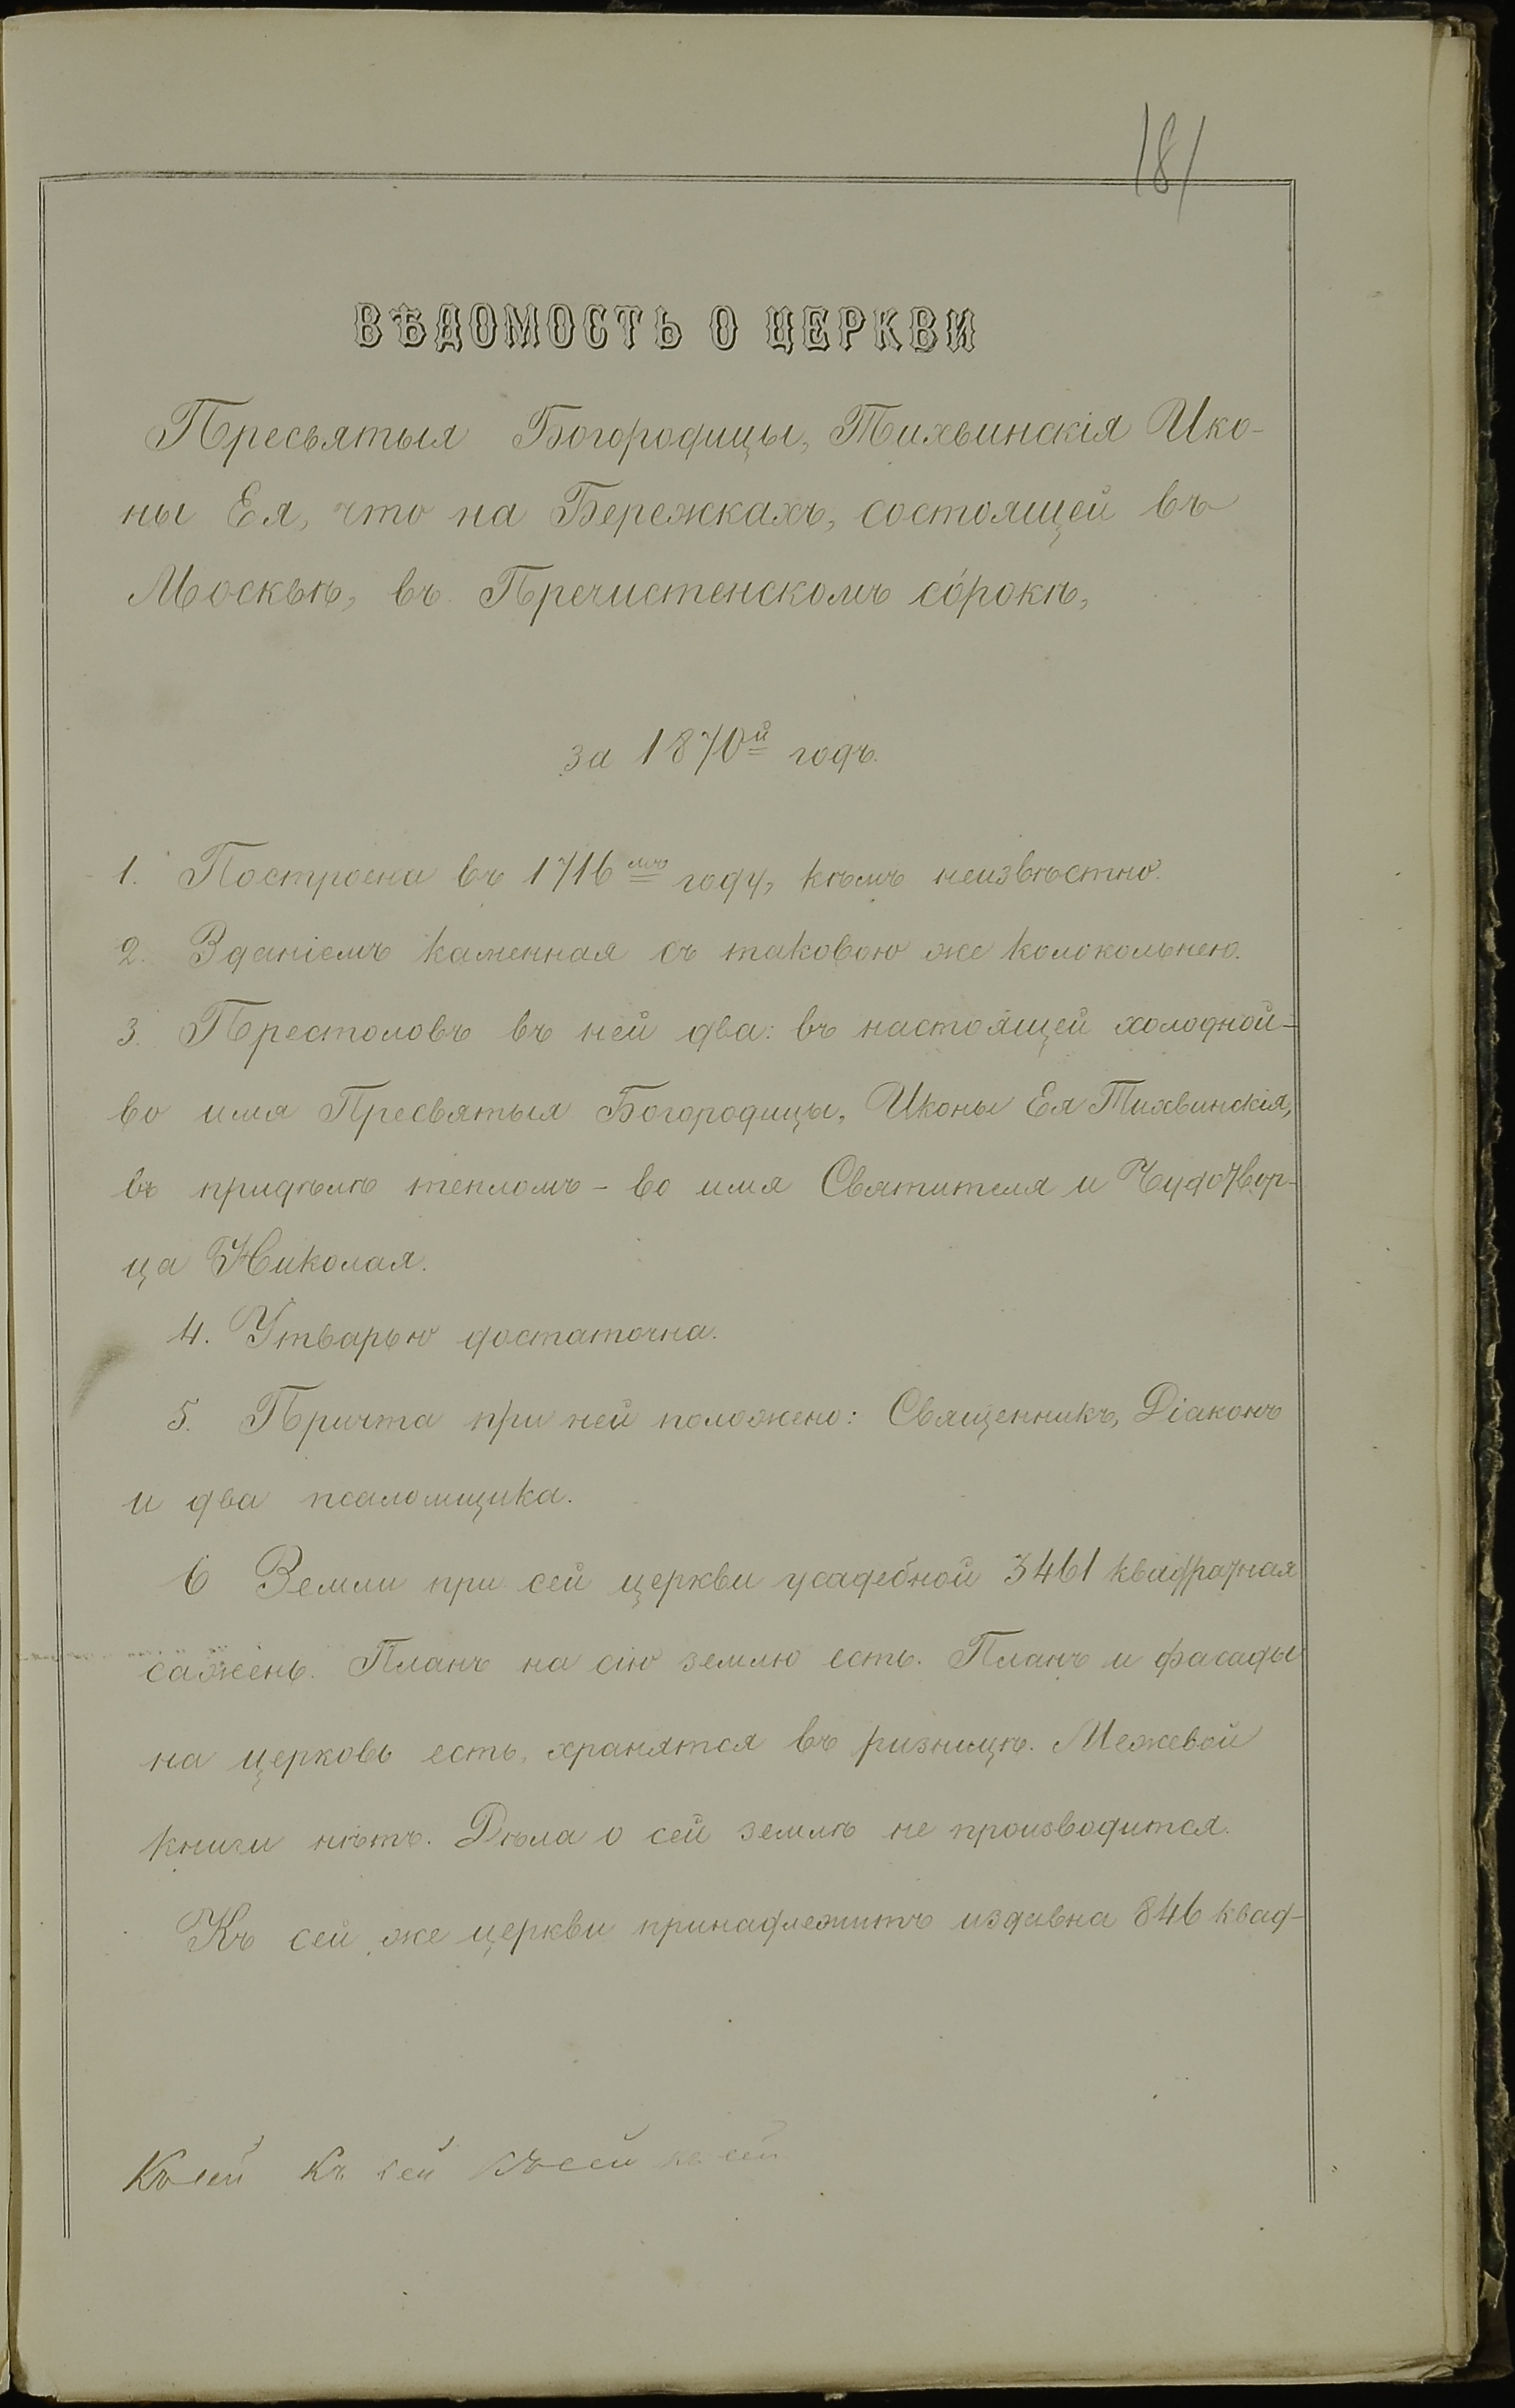 181
ВѢДОМОСТЬ О ЦЕРКВИ
Пресвятыя Богородицы, Тихвинскія Ико-
ны Ея, что на Бережкахъ, состоящей въ
Москвѣ, въ Пречистенскомъ со́рокѣ,
за 1870й годъ.
1. Построена въ 1716мъ году, кѣмъ неизвѣстно.
2. Зданіемъ каменная съ таковою же колокольнею.
3. Престоловъ въ ней два: въ настоящей холодной-
во имя Пресвятыя Богородицы, Иконы Ея Тихвинскія,
въ придѣлѣ тепломъ - во имя Святителя и Чудотвор-
ца Николая.
4. Утварью достаточна.
5. Причта при ней положено: Священникъ, Діаконъ
и два псаломщика.
6 Земли при сей церкви усадебной 3461 квадратная
сажень. Планъ на сію землю есть. Планъ и фасады
на церковь есть, хранятся въ ризницѣ. Межевой
книги нѣтъ. Дѣла о сей землѣ не производится.
Къ сей же церкви принадлежитъ издавна 846 квад-
Къ сей къ сей къ сей къ сей